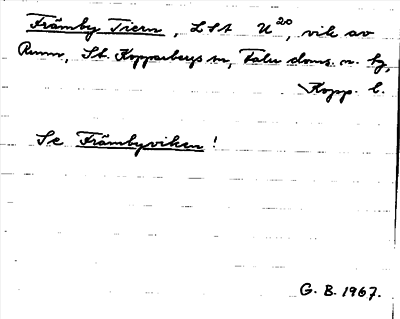 Främby Tiern, LSt U²⁰, vik av
Runn, St. Kopparbergs sn, Falu doms. o. bg,
Kopp. l.
Se Främbyviken!
G. B. 1967.